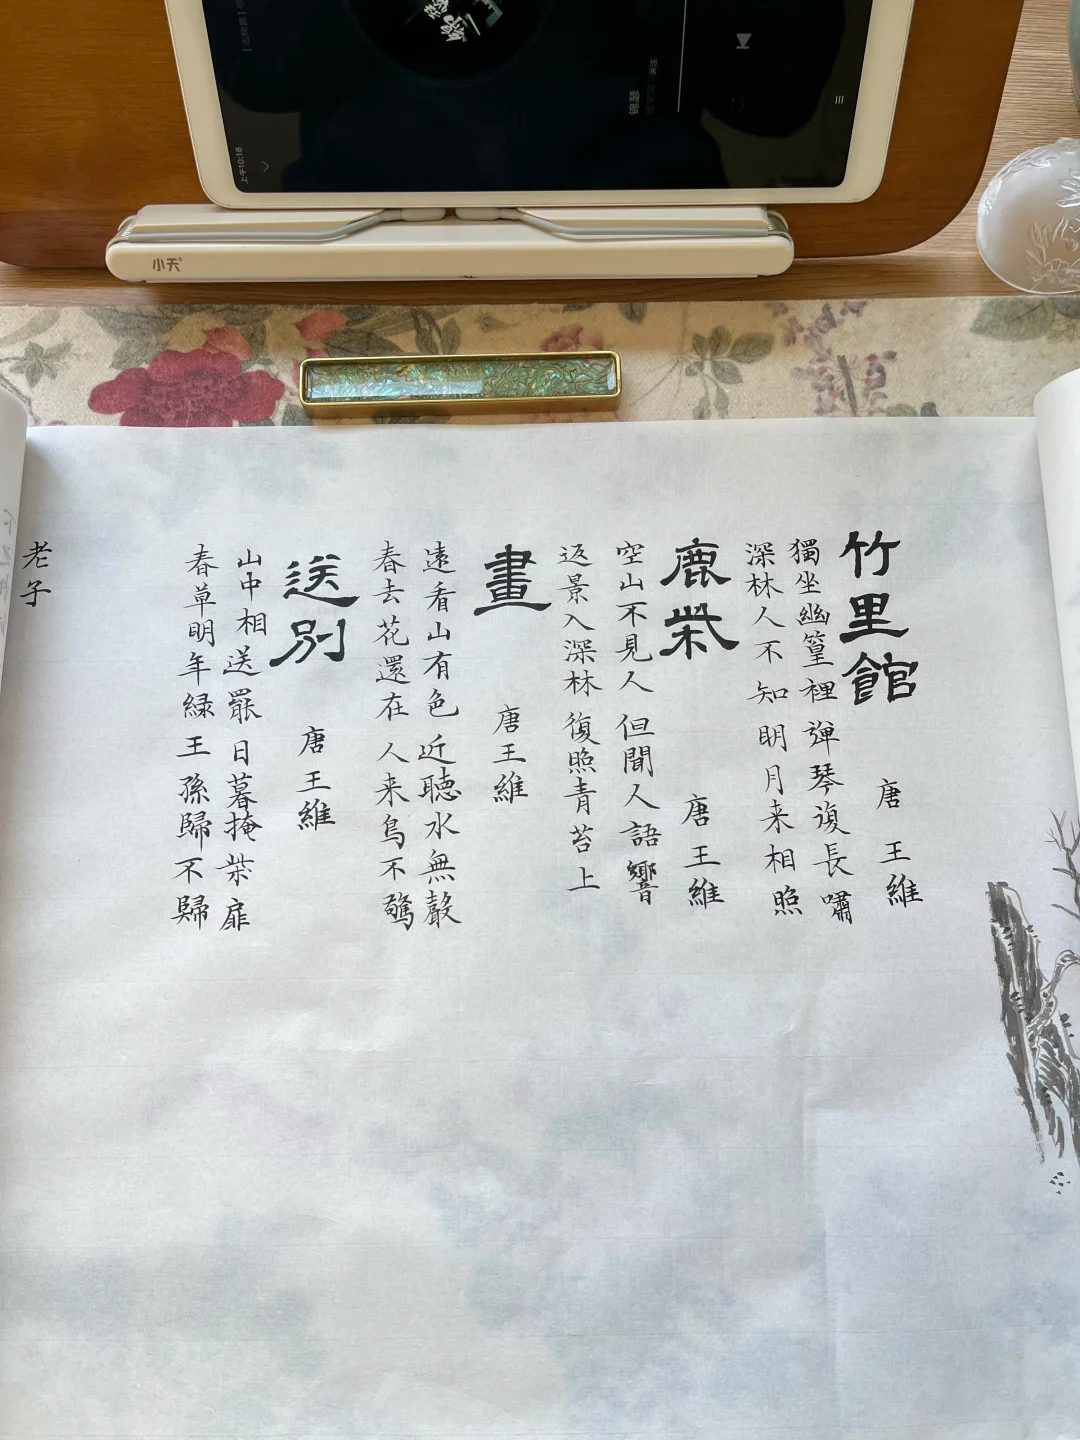 竹里館
唐 王維
獨坐幽篁裡 弹琴復長嘯
深林人不知 明月来相照
鹿柴
唐 王維
空山不見人 但聞人語響
返景入深林 復照青苔上
畫
唐 王維
遠看山有色 近聽水無聲
春去花還在 人来鸟不驚
送別
唐 王維
山中相送罷 日暮掩柴扉
春草明年緑 王孫歸不歸
老子
小天
上午10:18
錦瑟
关注